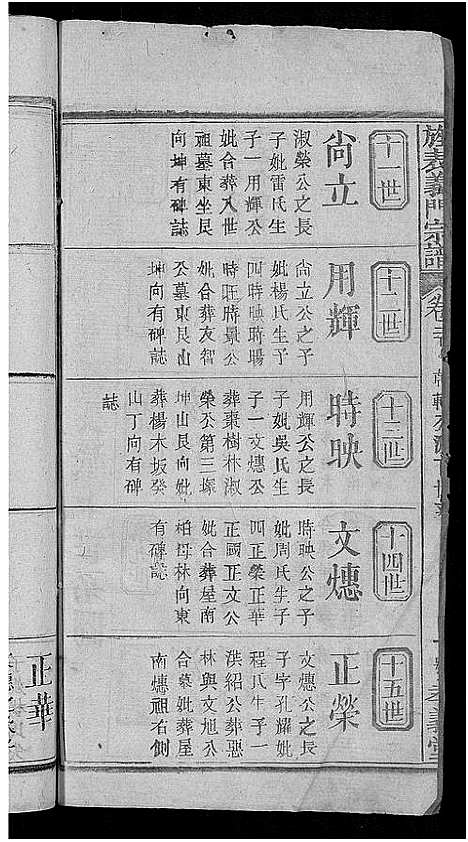 旌表義門宗譜
十一世
尙立
淑榮公之長
子妣雷氏生
子一用輝公
妣合葬入世
祖墓東坐艮
向坤有碑誌
十二世
用輝
尙立公之子
妣楊氏生子
四時映時暘
時旺時景公
妣合葬友智
公墓東艮山
坤向有碑誌
十三世
時映
用輝公之長
子妣吳氏生
子一文憓公
葬棗樹林淑
榮公第三塚
坤山艮向妣
葬楊木坂癸
山丁向有碑
誌
十四世
文憓
時映公之子
妣周氏生子
四正榮正華
正國正文公
妣合葬屋南
柏母林向東
有碑誌
十五世
正榮
文憓公之長
子字孔耀妣
程氏生子一
洪紹公葬惡
林與文旭公
合墓妣葬屋
南憓祖右側
正華